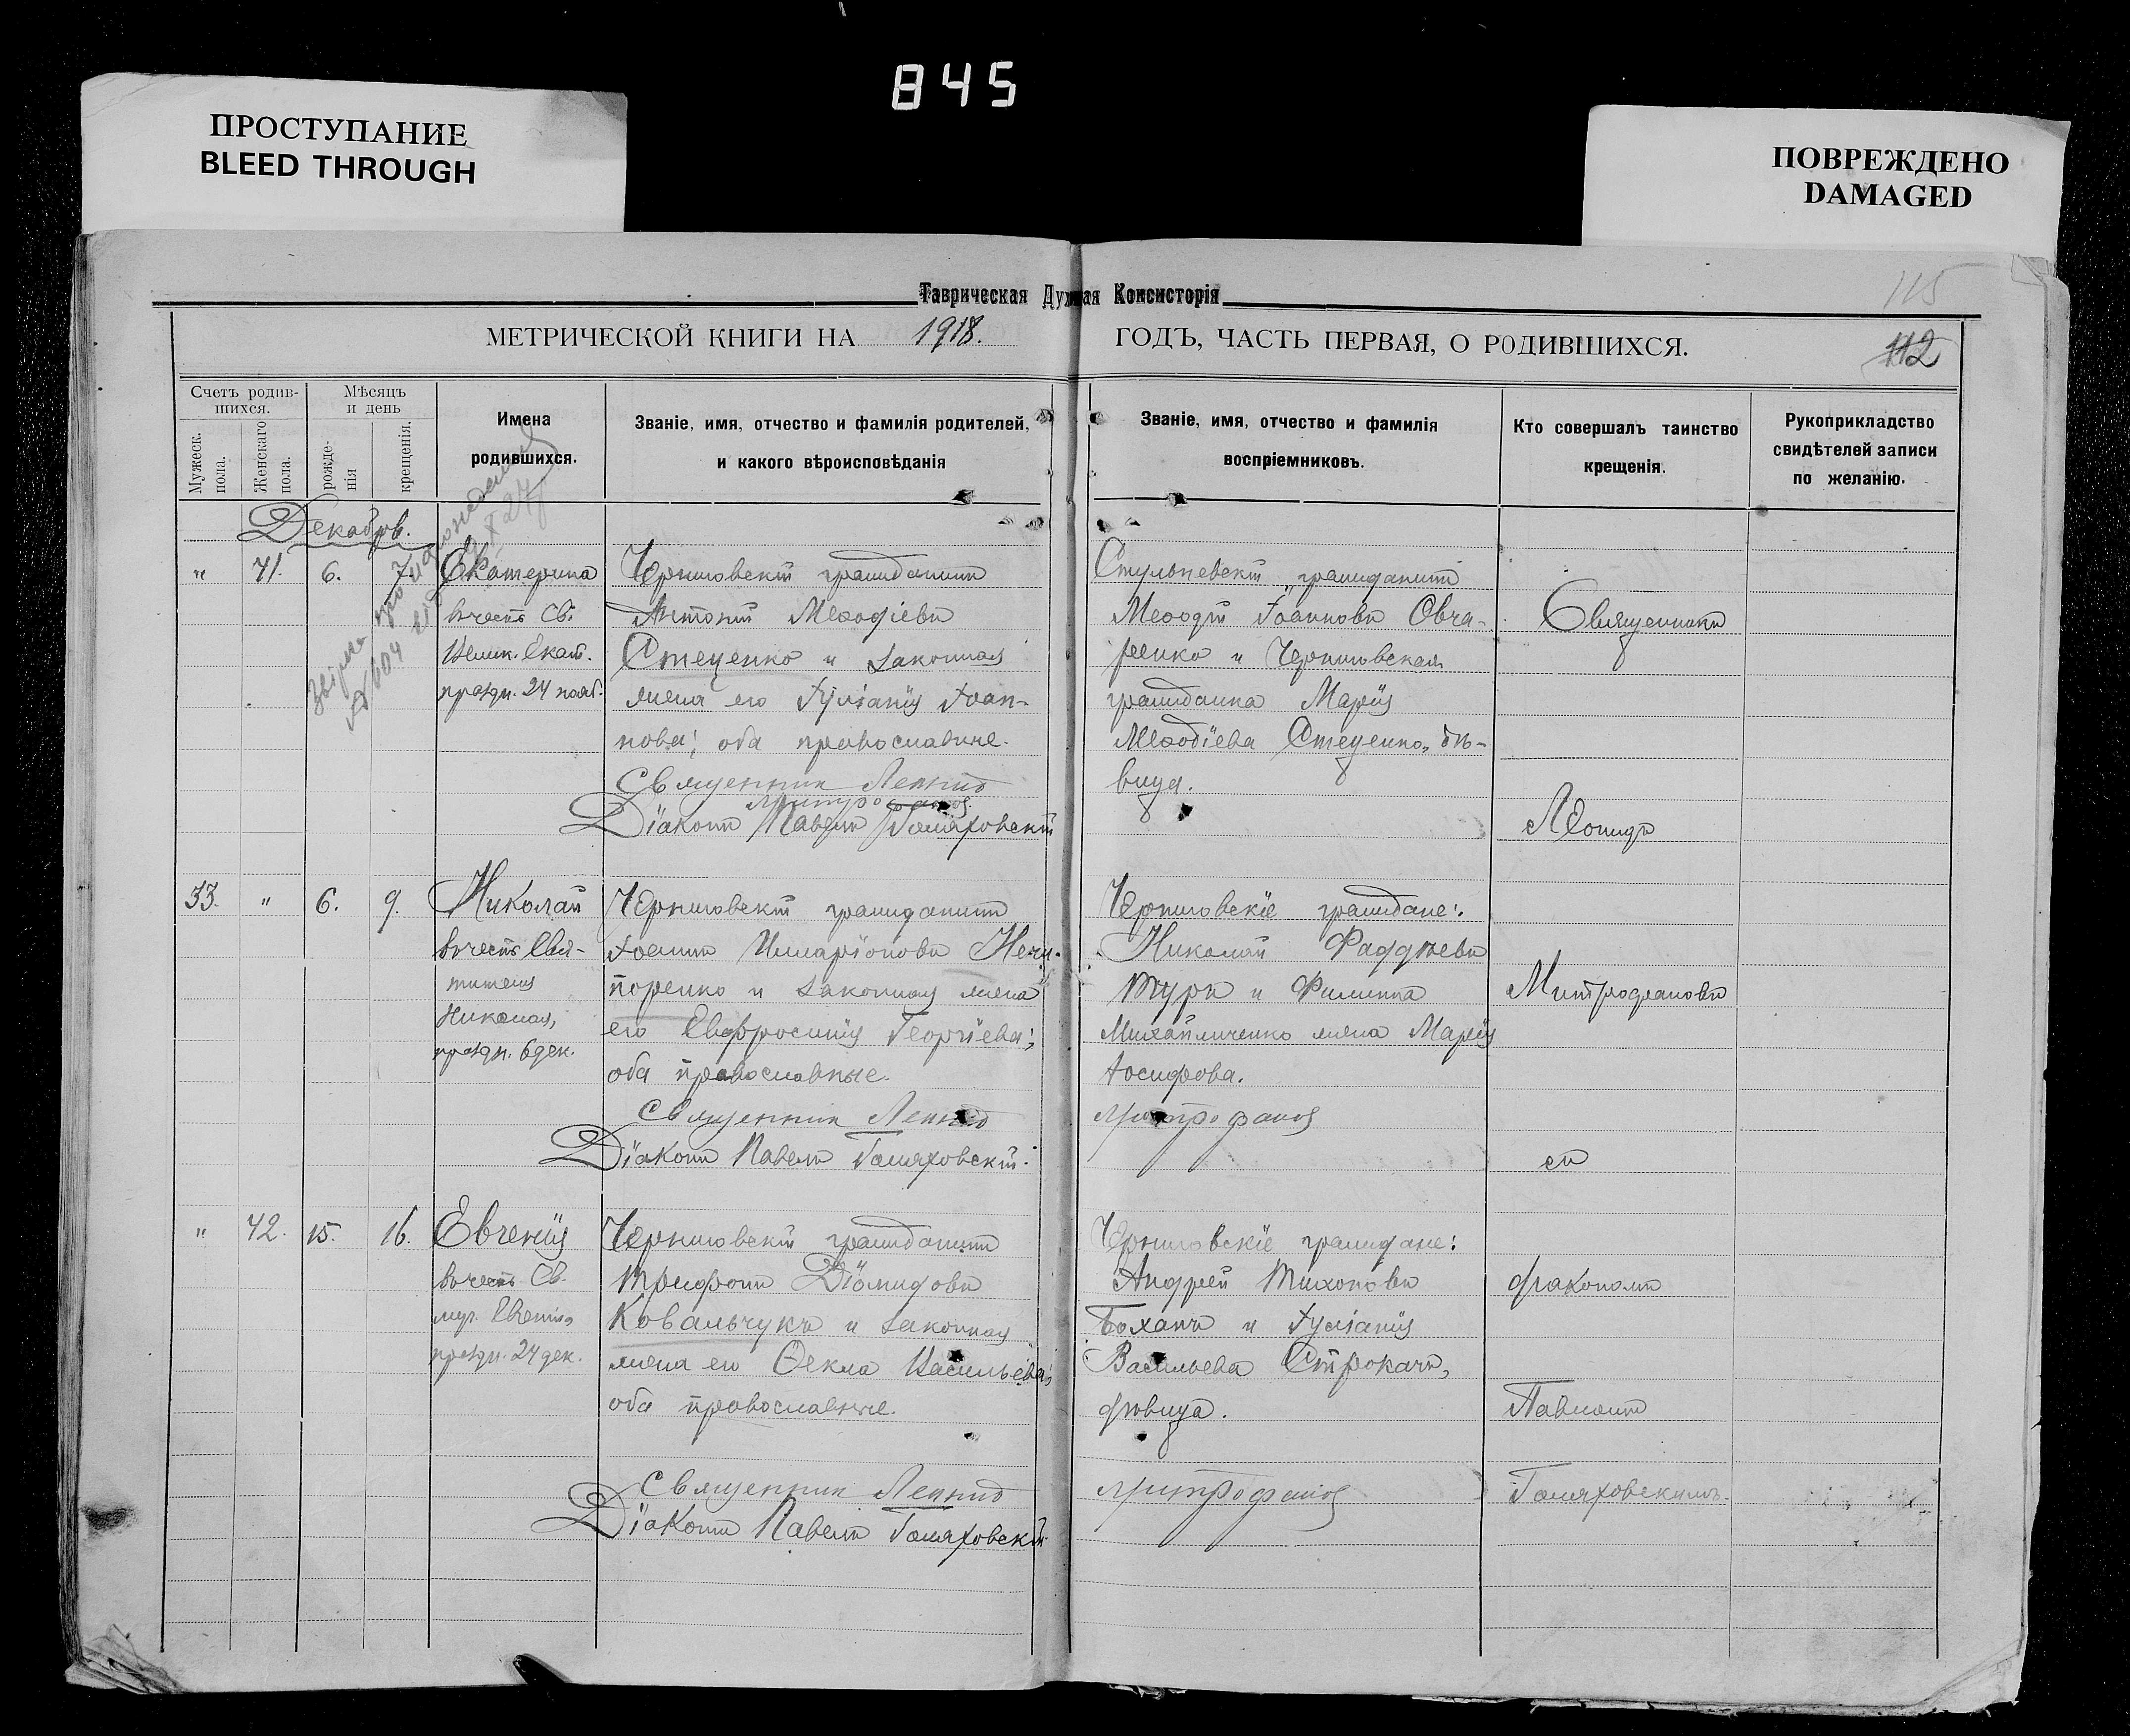 845
ПРОСТУПАНИЕ
BLEED THROUGH
ПОВРЕЖДЕНО
DAMAGED
Таврическая Духная Консисторія
115
МЕТРИЧЕСКОЙ КНИГИ НА 1918.
ГОДЪ, ЧАСТЬ ПЕРВАЯ, О РОДИВШИХСЯ.
112
Счетъ родив-
шихся.
Мужеск.
пола.
Женскаго
пола.
Мѣсяцъ
и день
рожде-
нія
крещенія.
Имена
родившихся.
Званіе, имя, отчество и фамилія родителей,
и какого вѣроисповѣданія
Званіе, имя, отчество и фамилія
воспріемниковъ.
Кто совершалъ таинство
крещенія.
Рукоприкладство
свидѣтелей записи
по желанію.
Декабрь.
" 41. 6. 7.
Екатерина
въ честь Св.
Велик. Екат.
праздн. 24 нояб.
Черниговскій гражданинъ
Антоній Меѳодіевъ
Стеценко и законная
жена его Іуліанія Іоан-
нова; оба православные.
Священник Леонид
Митрофанов
Діаконъ Павелъ Гомяховскій
гражданинъ
Меѳодій Іоанновъ Овча-
ренко и Черниговская
гражданка Марія
Меѳодіева Стеценко, дѣ-
вица.
Священникъ
Леонидъ
33. " 6. 9.
Николай
въ честь Свя-
тителя
Николая,
праздн. 6 дек.
Черниговскій гражданинъ
Іоаннъ Илларіоновъ Нечи-
поренко и законная жена
его Евфросинія Георгіева;
оба православные.
Священник Леонид
Діаконъ Павелъ Гомяховскій.
Черниговскіе граждане:
Николай Фаддѣевъ
Туръ и Филиппа
Михайличенко жена Марія
Іосифова.
Митрофанов
Митрофановъ
съ
" 42. 15. 16.
Евгенія
въ честь Св.
муч. Евгеніи
праздн. 24 дек.
Черниговскій гражданинъ
Трифонъ Діомидовъ
Ковальчукъ и законная
жена его Ѳекла Васильева;
оба православные.
Священник Леонид
Діаконъ Павелъ Гомяховскій.
Черниговскіе граждане:
Андрей Тихоновъ
Боханъ и Іуліанія
Васильева Строкачъ,
дѣвица.
Митрофанов
діакономъ
Павломъ
Гомяховскимъ.